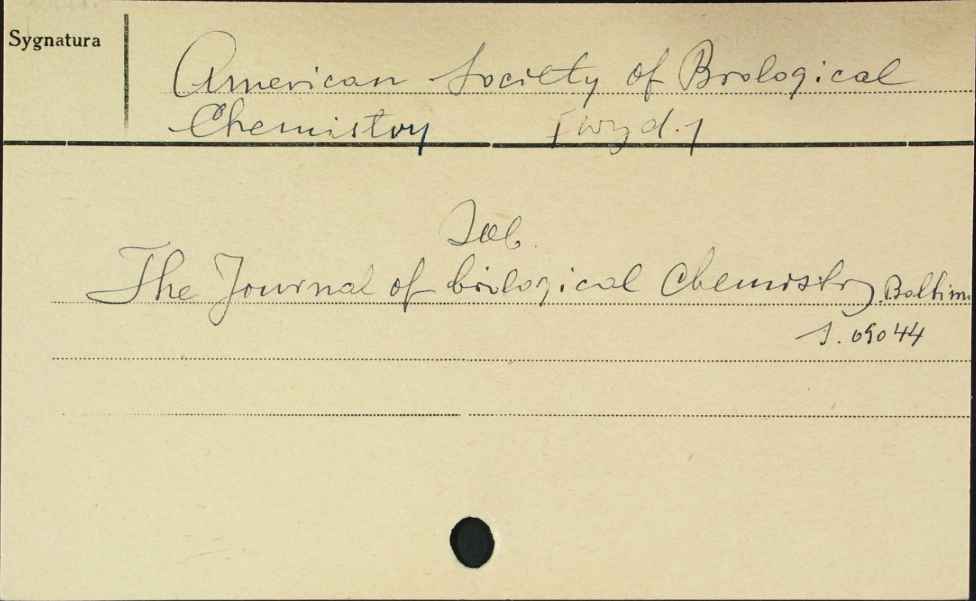 Sygnatura
American Society of Biological
Chemistry [wyd.]
Zob.
The Journal of biological Chemistry Baltim
S. 09044